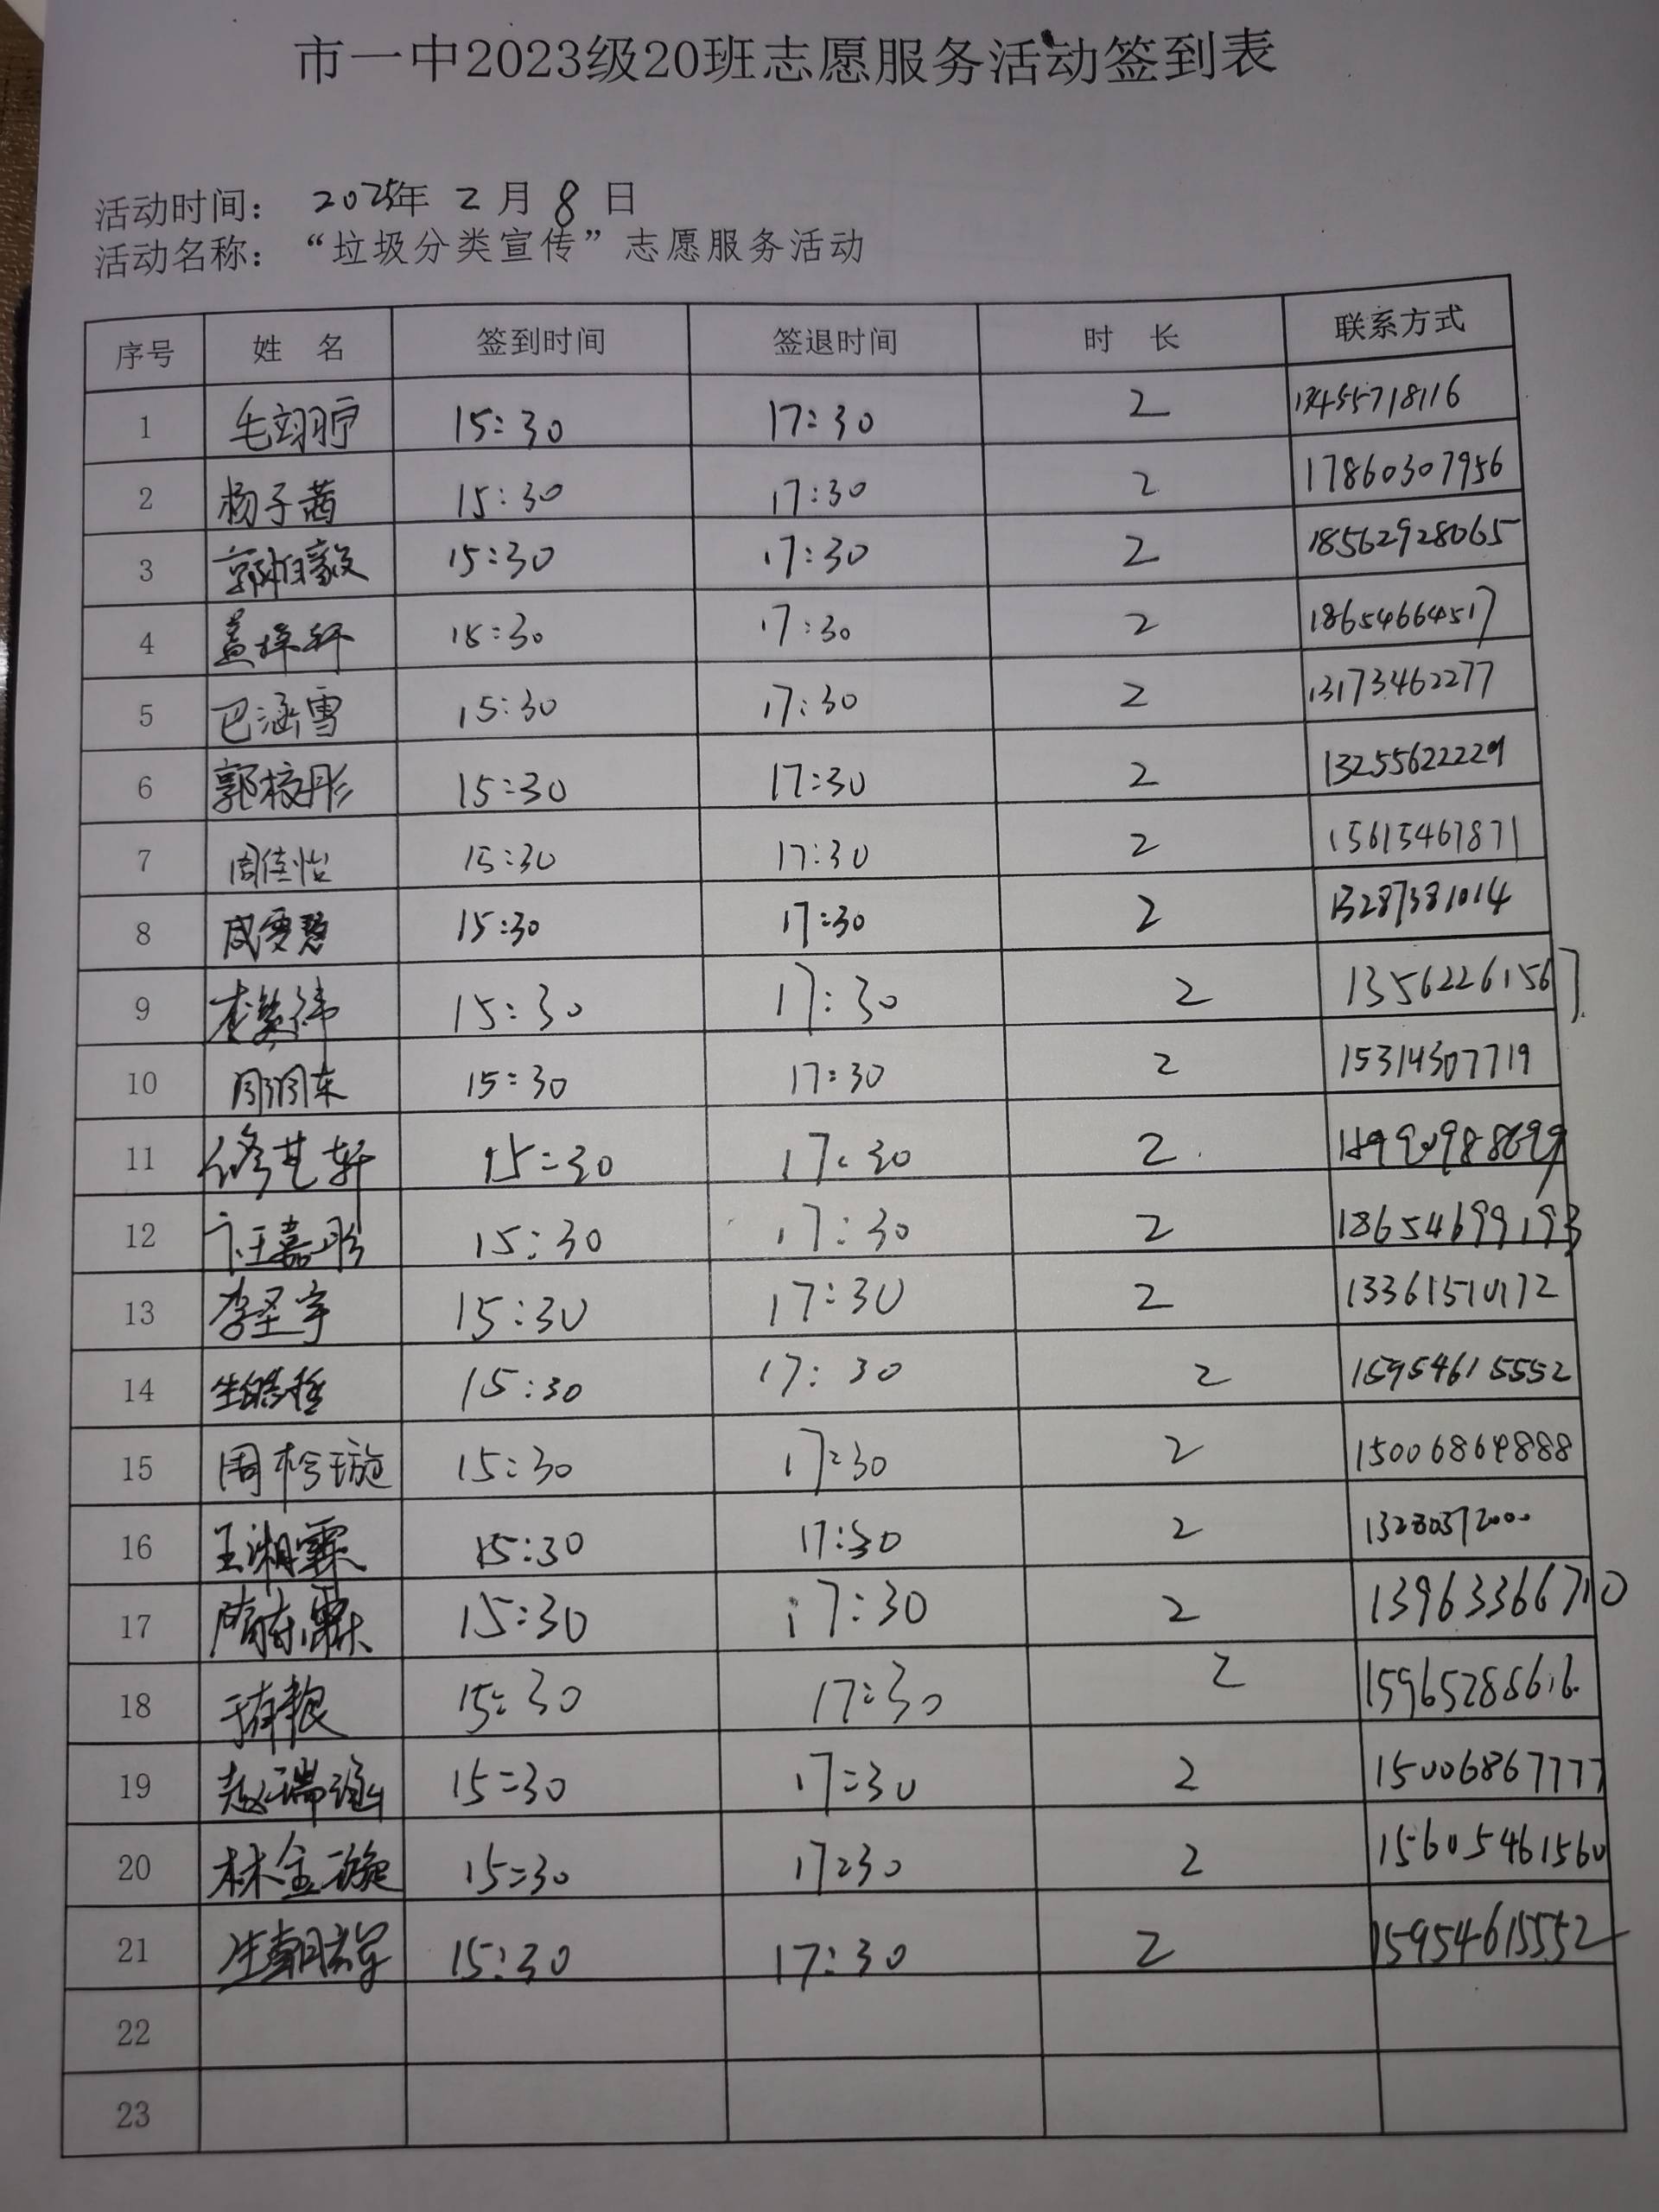 市一中2023级20班志愿服务活动签到表
活动时间： 2025年 2 月 8 日
活动名称：“垃圾分类宣传”志愿服务活动
序号 姓 名 签到时间 签退时间 时 长 联系方式
1 毛翊宁 15:30 17:30 2 13455718116
2 杨子茜 15:30 17:30 2 17860307956
3 15:30 17:30 2 18562928065
4 15:30 17:30 2 18654664517
5 巴涵雪 15:30 17:30 2 13173462277
6 15:30 17:30 2 13255622229
7 周佳怡 15:30 17:30 2 15615461871
8 15:30 17:30 2 13287381014
9 15:30 17:30 2 13562261567
10 周润东 15:30 17:30 2 15314307719
11 修艺轩 15:30 17:30 2
12 15:30 17:30 2 18654699193
13 李圣宇 15:30 17:30 2
14 15:30 17:30 2 15954615552
15 15:30 17:30 2 15006864888
16 王湘霖 15:30 17:30 2
17 隋东霖 15:30 17:30 2 13963366710
18 15:30 17:30 2
19 赵瑞涵 15:30 17:30 2 15006867777
20 林金璇 15:30 17:30 2 15605461560
21 15:30 17:30 2 15954615552
22
23